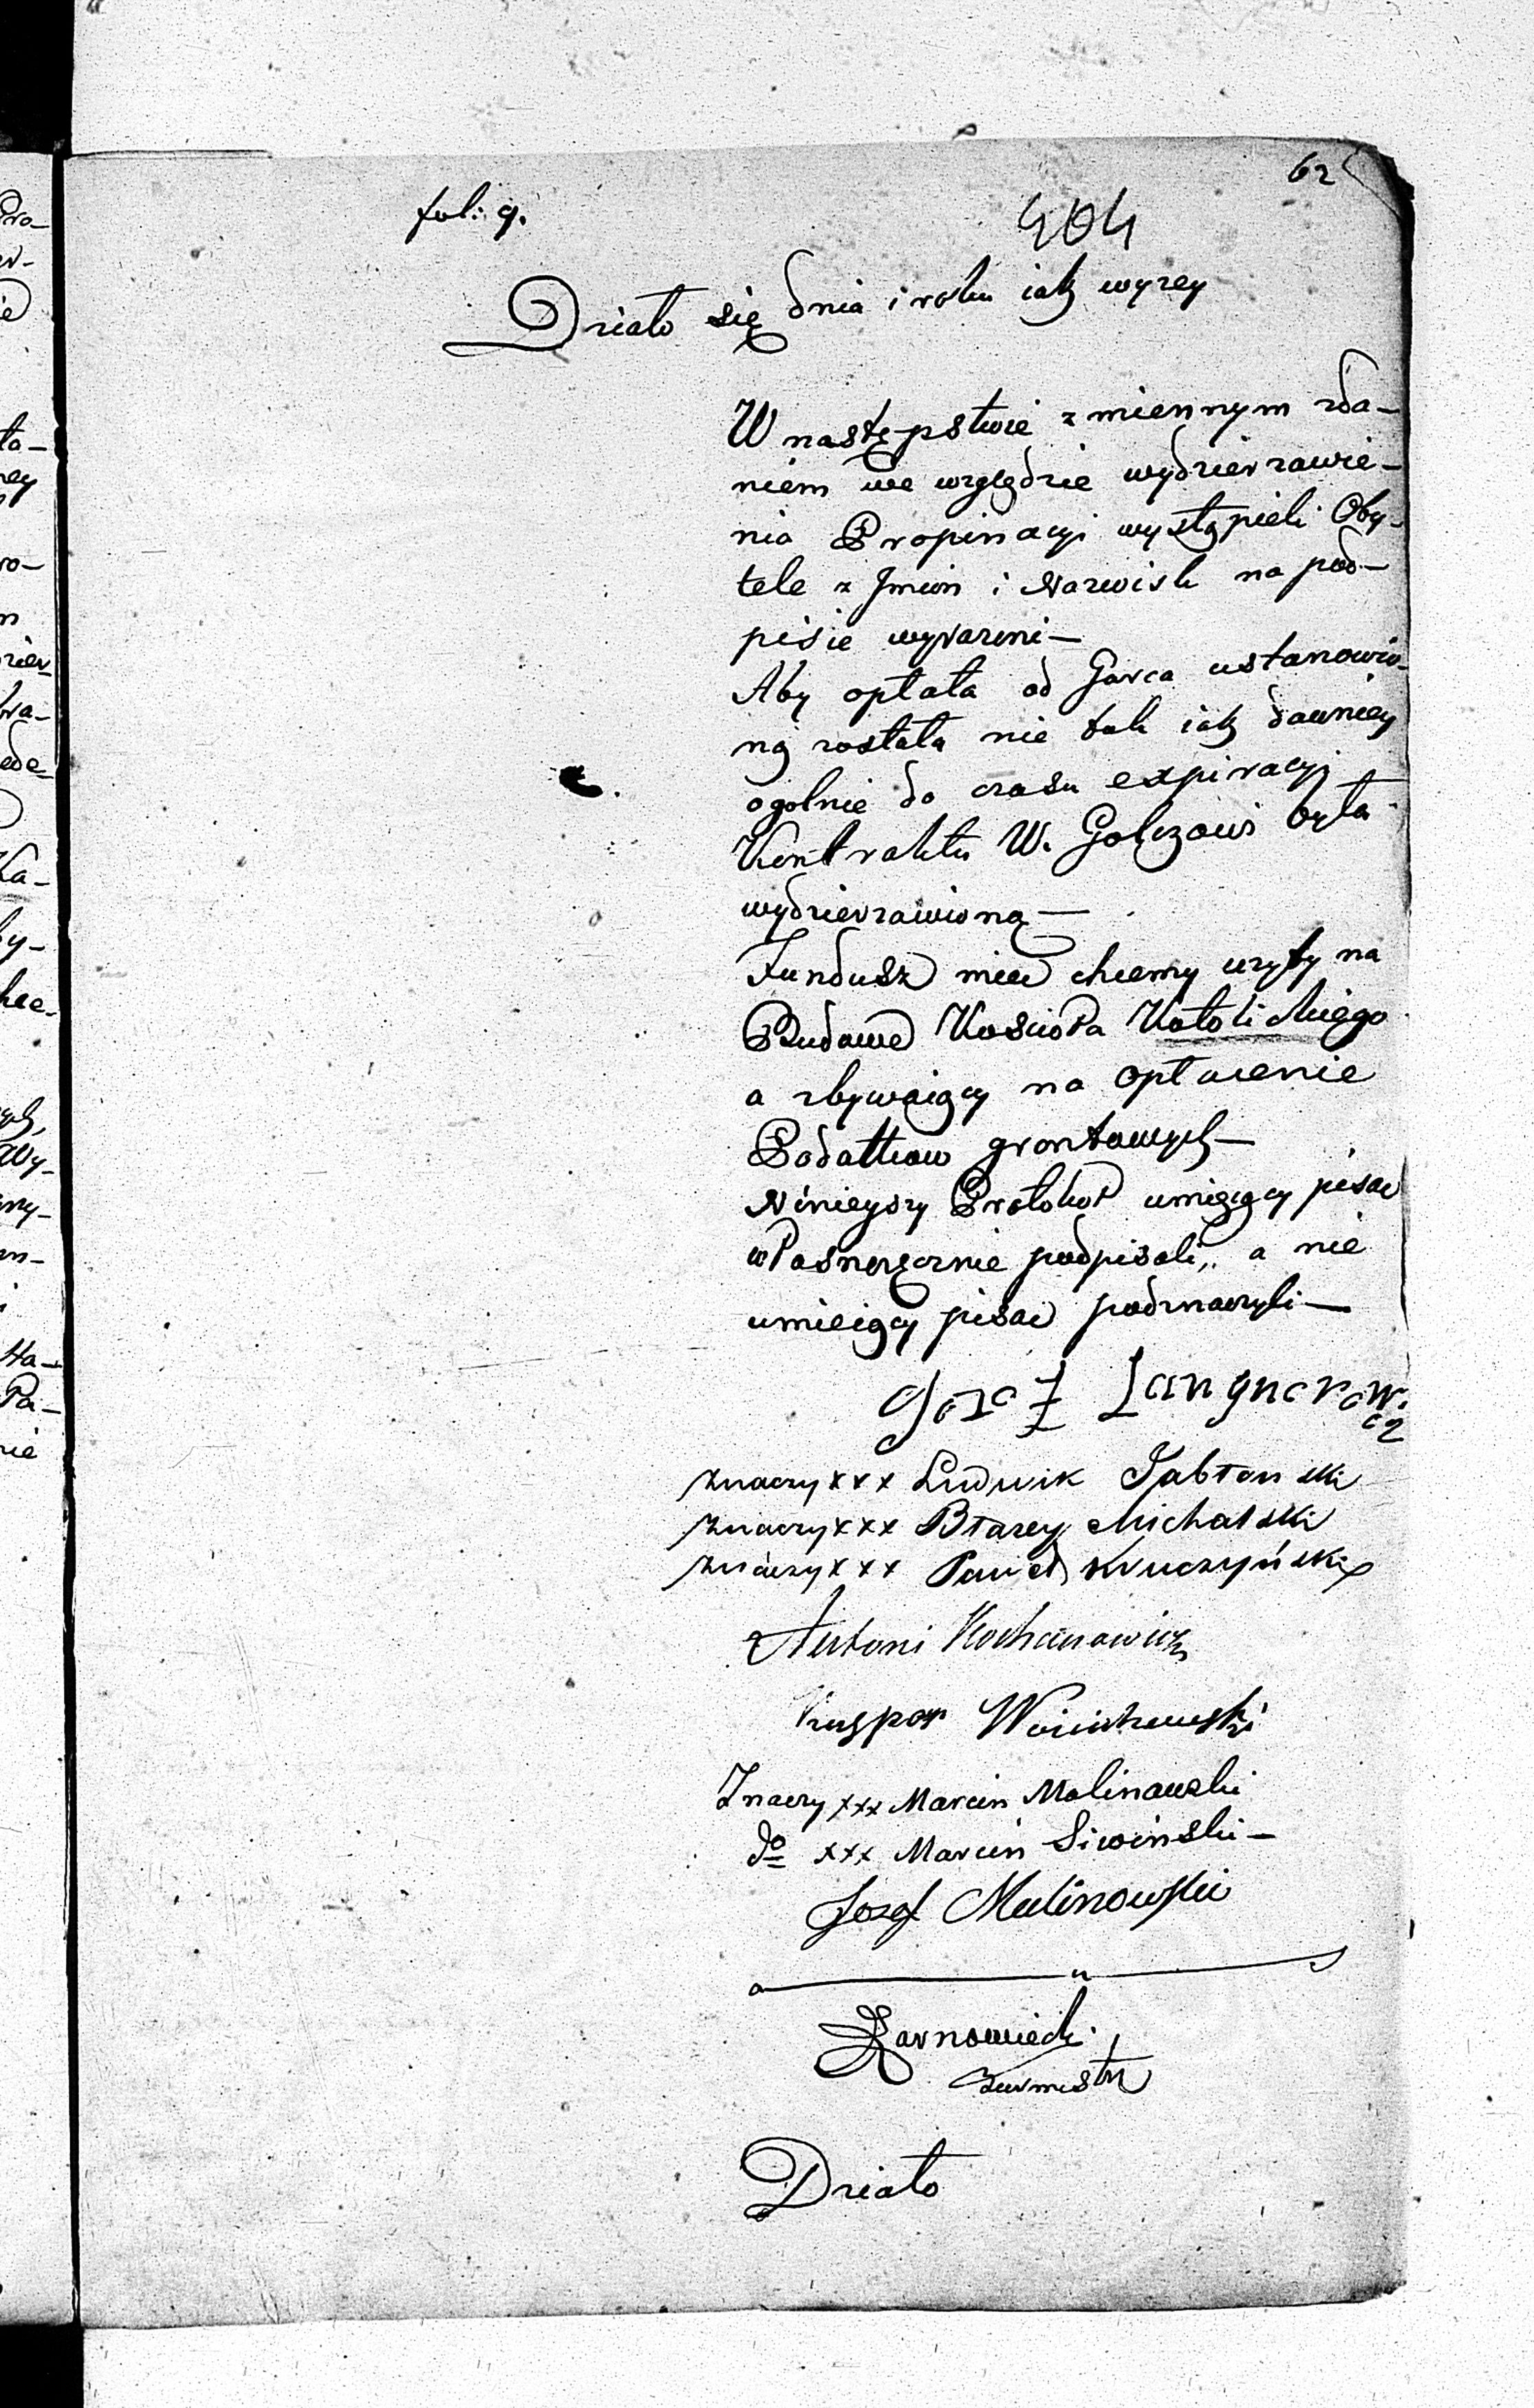 62
fol: 9.
404
Działo się dnia i roku iak wyzey
W następstwie zmiennym zda-
niem we względzie wydzierzawie-
nia Propinacyi wystąpieli Oby-
tele z Jmion i Nazwisk na pod-
pisie wyrazeni —
Aby opłata od Garca ustanowio-
ną została nie tak iak dawniey
ogolnie do czasu expiracyi
Kontraktu W. Golczowi była
wydzierzawioną —
Fundusz mieć chcemy uzyty na
Budowe Koscioła Katolickiego
a zbywaiący na opłacenie
Podatkow grontowych —
Ninieyszy Protokoł umieiący pisac
własnoręcznie podpisali, a nie
umieiący pisac podznaczyli —
Jozef Langnerowicz
Znaczy xxx Ludwik Jabłonski
Znaczy xxx Błazey Michalski
Znaczy xxx Paweł Kruczyński
Antoni Kochanowicz
Kasper Woiciechowski
Znaczy xxx Marcin Malinowski
do xxx Marcin Siwinski —
Jozef Malinowski
Zarnowiecki
Burmistrz
Działo